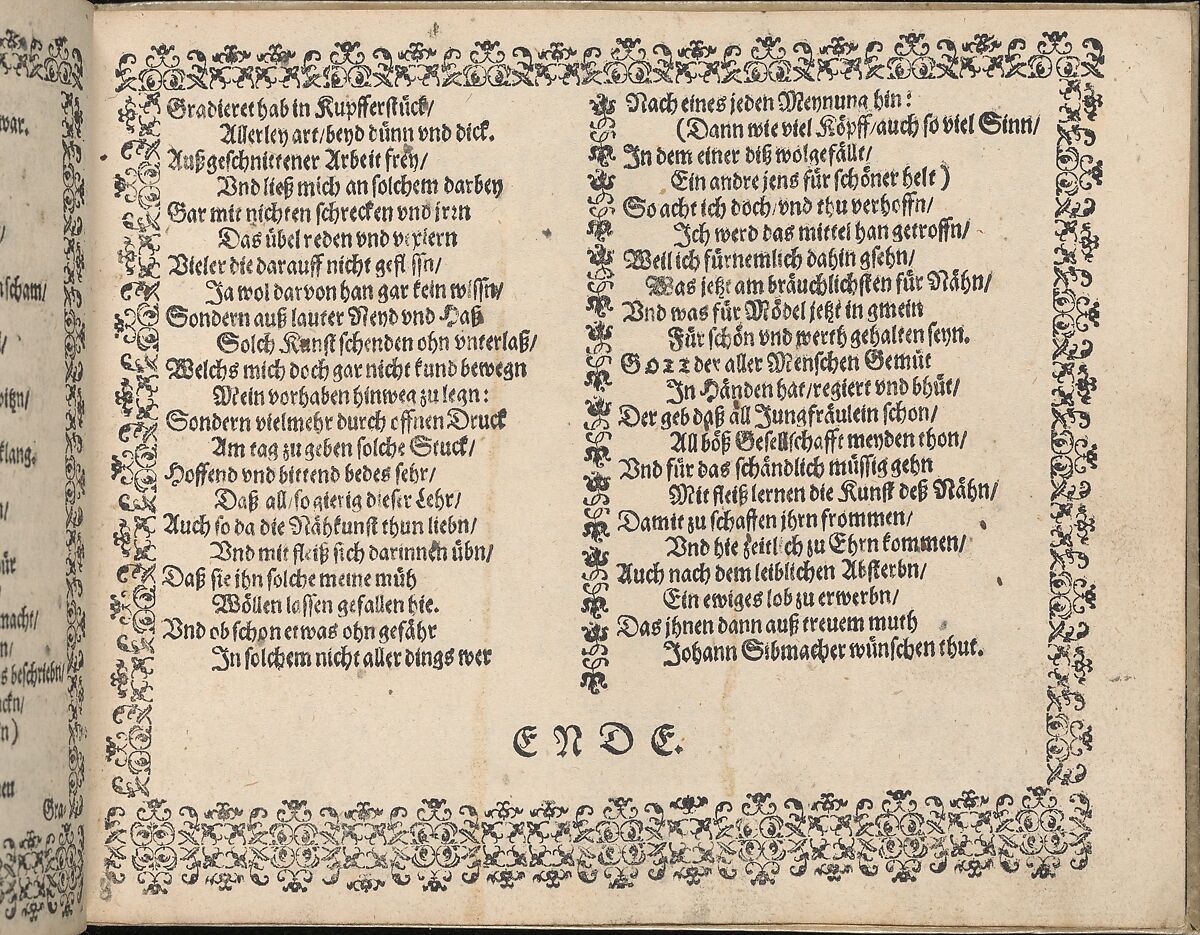 war.
nscham/
witzn/
klang.
für
macht/
s beschriebn/
Gra-
Gradieret hab in Kupfferstück/
Allerley art/beyd dünn vnd dick.
Außgeschnittener Arbeit frey/
Vnd ließ mich an solchem darbey
Gar mit nichten schrecken vnd jrrn
Das übel reden vnd vexiern
Vieler die darauff nicht geflissn/
Ja wol darvon han gar kein wissn/
Sondern auß lauter Neyd vnd Haß
Solch Kunst schenden ohn vnterlaß/
Welchs mich doch gar nicht kund bewegn
Mein vorhaben hinweg zu legn:
Sondern vielmehr durch offnen Druck
Am tag zu geben solche Stuck/
Hoffend vnd bittend bedes sehr/
Daß all/so gierig dieser Lehr/
Auch so da die Nähkunst thun liebn/
Vnd mit fleiß sich darinnen übn/
Daß sie ihn solche meine müh
Wöllen lassen gefallen hie.
Vnd ob schon etwas ohn gefähr
In solchem nicht aller dings wer
Nach eines jeden Meynung hin:
(Dann wie viel Köpff/auch so viel Sinn/
In dem einer diß wolgefällt/
Ein andre jens für schöner helt)
So acht ich doch/vnd thu verhoffn/
Ich werd das mittel han getroffn/
Weil ich fürnemlich dahin gsehn/
Was jetzt am bräuchlichsten für Nähn/
Vnd was für Mödel jetzt in gmein
Für schön vnd werth gehalten seyn.
GOTT der aller Menschen Gemüt
In Händen hat/regiert vnd bhüt/
Der geb daß all Jungfräulein schon/
All böß Gesellschafft meyden thon/
Vnd für das schändlich müssig gehn
Mit fleiß lernen die Kunst deß Nähn/
Damit zu schaffen jhrn frommen/
Vnd hie zeitlich zu Ehrn kommen/
Auch nach dem leiblichen Absterbn/
Ein ewiges lob zu erwerbn/
Das jhnen dann auß treuem muth
Johann Sibmacher wünschen thut.
ENDE.